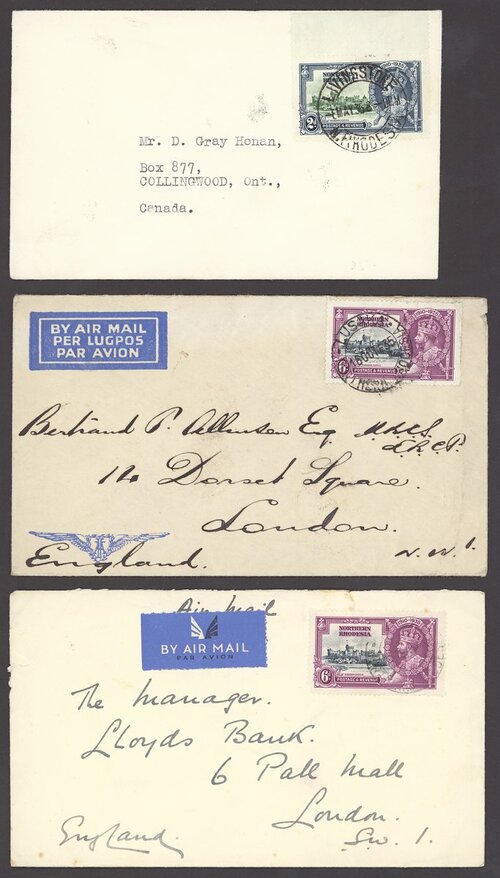 NORTHERN
RHODESIA
2d
POSTAGE & REVENUE
LIVINGSTONE
N. RHODESIA
Mr. D. Gray Honan,
Box 877,
COLLINGWOOD, Ont.,
Canada.
BY AIR MAIL
PER LUGPOS
PAR AVION
NORTHERN
RHODESIA
1910-1935
6d
POSTAGE & REVENUE
LUSAKA
Bertrand P. Allinson Esq M.R.C.S.
L.R.C.P.
14 Dorset Square.
London.
England. N.W.1.
Air Mail
BY AIR MAIL
PAR AVION
NORTHERN
RHODESIA
1910-1935
6d
POSTAGE & REVENUE
The Manager.
Lloyds Bank.
6 Pall Mall
London.
England. S.W.1.